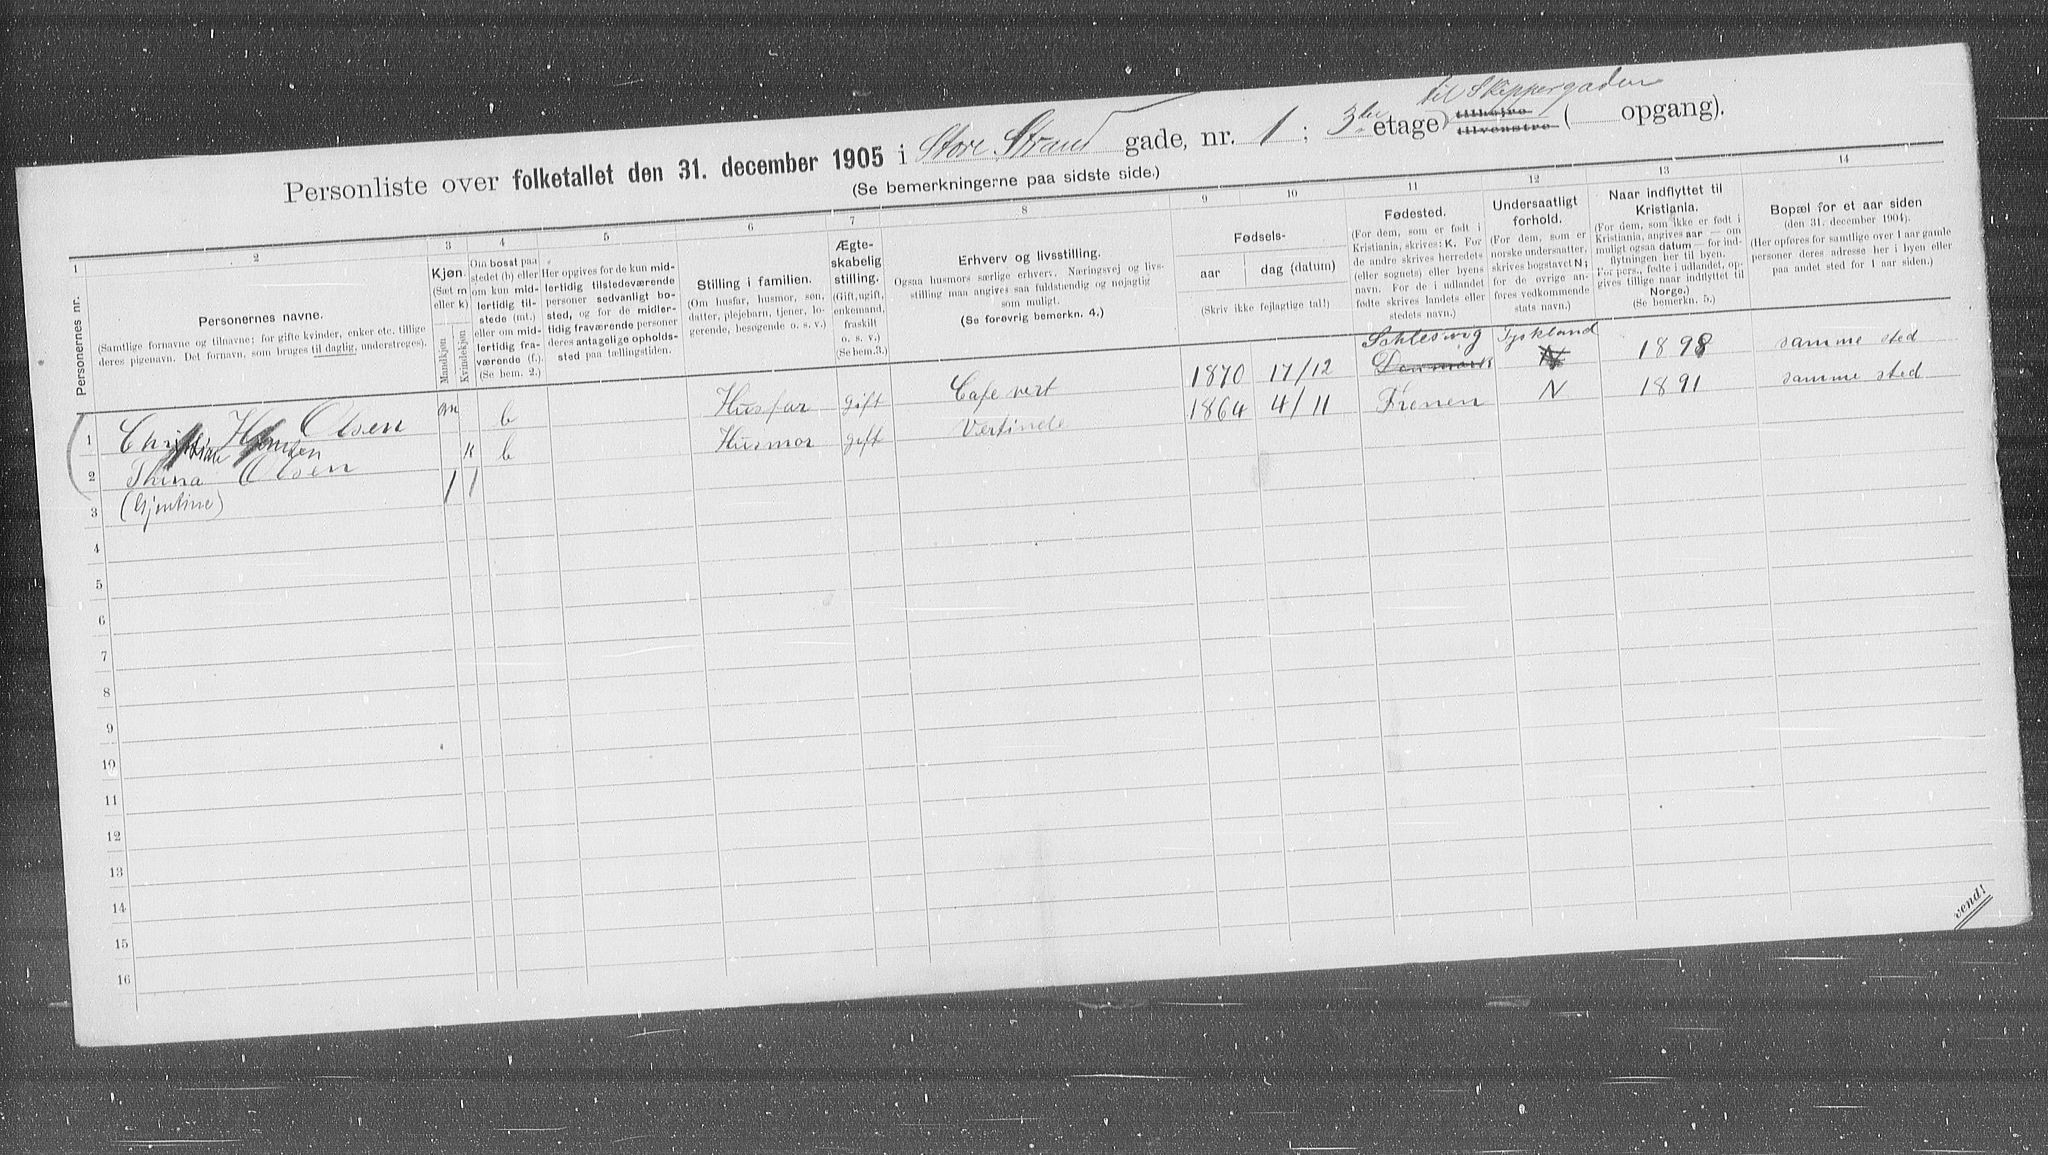 til Skippergaden
Personliste over folketallet den 31. december 1905 i Store Strand gade, nr. 1; 3die etage) tilhøjre tilvenstre ( opgang).
(Se bemerkningerne paa sidste side.)
1 2 3 4 5 6 7 8 9 10 11 12 13 14
Personernes nr.
Personernes navne.
(Samtlige fornavne og tilnavne; for gifte kvinder, enker etc. tillige
deres pigenavn. Det fornavn, som bruges til daglig, understreges).
Kjøn.
(Sæt m
eller k)
Mandkjøn
Kvindekjøn
Om bosat paa
stedet (b) eller
om kun mid-
lertidig til-
stede (mt.)
eller om mid-
lertidig fra-
værende (f.).
(Se bem. 2.)
Her opgives for de kun mid-
lertidig tilstedeværende
personer sedvanligt bo-
sted, og for de midler-
tidig fraværende personer
deres antagelige opholds-
sted paa tællingstiden.
Stilling i familien.
(Om husfar, husmor, søn,
datter, plejebarn, tjener, lo-
gerende, besøgende o. s. v.)
Ægte-
skabelig
stilling.
(Gift, ugift,
enkemand,
fraskilt
o. s. v.)
(Se bem.3.)
Erhverv og livsstilling.
Ogsaa husmors særlige erhverv. Næringsvej og livs-
stilling maa angives saa fuldstændig og nøjagtig
som muligt.
(Se forøvrig bemerkn. 4.)
Fødsels-
aar
dag (datum)
(Skriv ikke fejlagtige tal!)
Fødested.
(For dem, som er født i
Kristiania, skrives: K. For
de andre skrives herredets
(eller sognets) eller byens
navn. For de i udlandet
fødte skrives landets eller
stedets navn.)
Undersaatligt
forhold.
(For dem, som er
norske undersaatter,
skrives bogstavet N;
for de øvrige an-
føres vedkommende
stats navn.)
Naar indflyttet til
Kristiania.
(For dem, som ikke er født i
Kristiania, angives aar — om
muligt ogsaa datum — for ind-
flytningen her til byen.
For pers., fødte i udlandet, op-
gives tillige naar indflyttet til
Norge.)
(Se bemerkn. 5.)
Bopæl for et aar siden
(den 31. december 1904).
(Her opføres for samtlige over 1 aar gamle
personer deres adresse her i byen eller
paa andet sted for 1 aar siden.)
Schlesvig Tyskland
1 Olsen m b Husfar gift Cafe vert 1870 17/12 Denmark N 1898 samme sted
Hansen
2 Thina Olsen k b Husmor gift Vertinde 1864 4/11 Frenen N 1891 samme sted
3 (Gjentine) 1 1
4
5
6
7
8
9
10
11
12
13
14
15
16
vend!